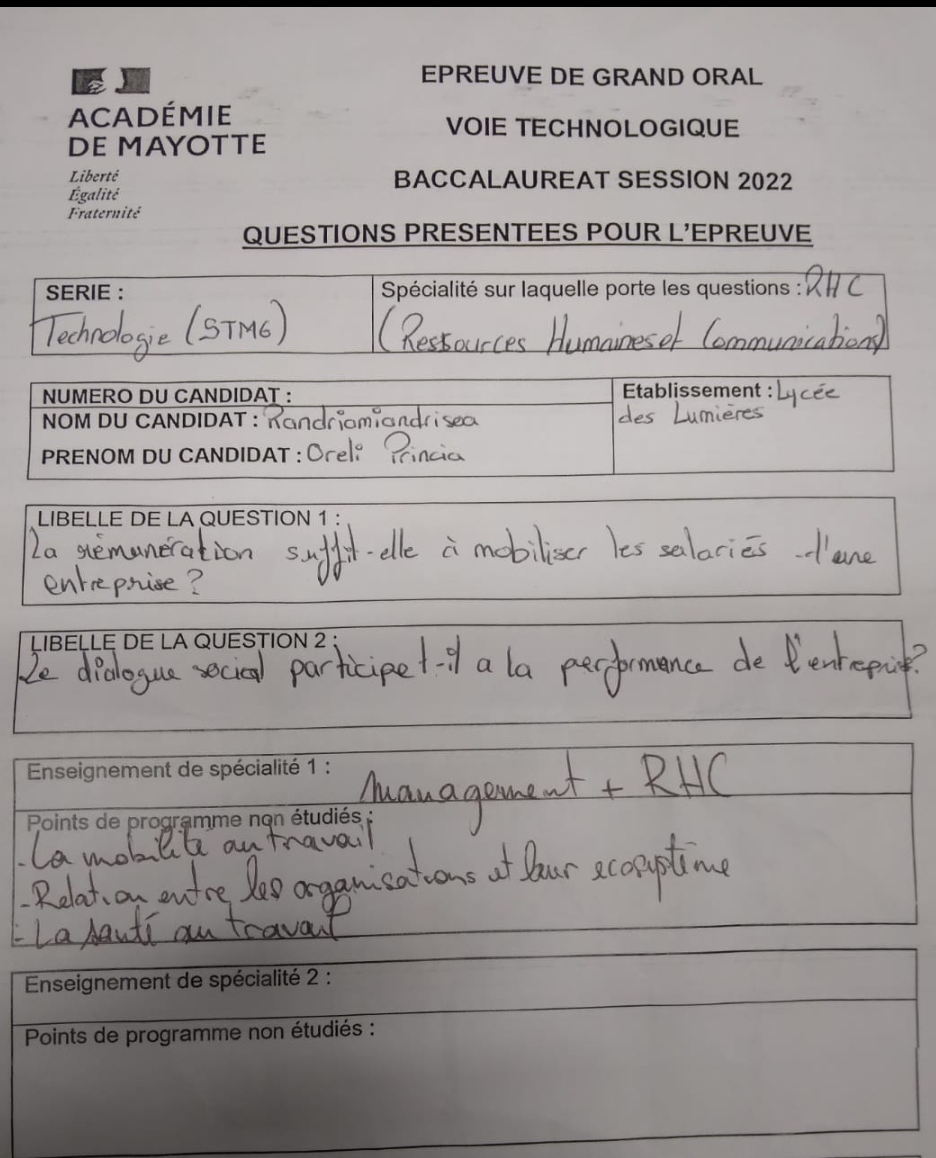 ACADÉMIE
DE MAYOTTE
Liberté
Égalité
Fraternité
EPREUVE DE GRAND ORAL
VOIE TECHNOLOGIQUE
BACCALAUREAT SESSION 2022
QUESTIONS PRESENTEES POUR L'EPREUVE
SERIE :
Technologie (STMG)
Spécialité sur laquelle porte les questions : RHC
(Ressources Humaines et Communications)
NUMERO DU CANDIDAT :
NOM DU CANDIDAT : Randriamiandrisea
PRENOM DU CANDIDAT : Oreli Princia
Etablissement : Lycée
des Lumières
LIBELLE DE LA QUESTION 1 :
La rémunération suffit-elle à mobiliser les salariés d'une
entreprise ?
LIBELLE DE LA QUESTION 2 :
Le dialogue social participe t-il a la performance de l'entreprise?
Enseignement de spécialité 1 :
Management + RHC
Points de programme non étudiés :
- La mobilité au travail
- Relation entre les organisations et leur ecosystème
- La santé au travail
Enseignement de spécialité 2 :
Points de programme non étudiés :